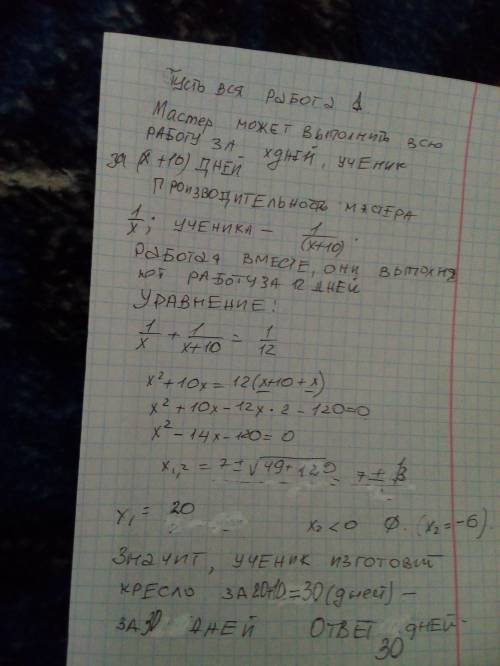 Пусть вся работа 1
Мастер может выполнить всю
работу за x дней, ученик
за (x + 10) дней
Производительность мастера
1/x; ученика - 1/(x+10).
Работая вместе, они выполня
ют работу за 12 дней
Уравнение:
1/x + 1/(x+10) = 1/12
x² + 10x = 12(x+10+x)
x² + 10x - 12x · 2 - 120 = 0
x² - 14x - 120 = 0
x₁,₂ = 7 ± √(49+120) = 7 ± 13
x₁ = 20 x₂ < 0 ∅. (x₂ = -6)
Значит, ученик изготовит
кресло за 20+10=30 (дней) -
за 30 дней Ответ 30 дней.